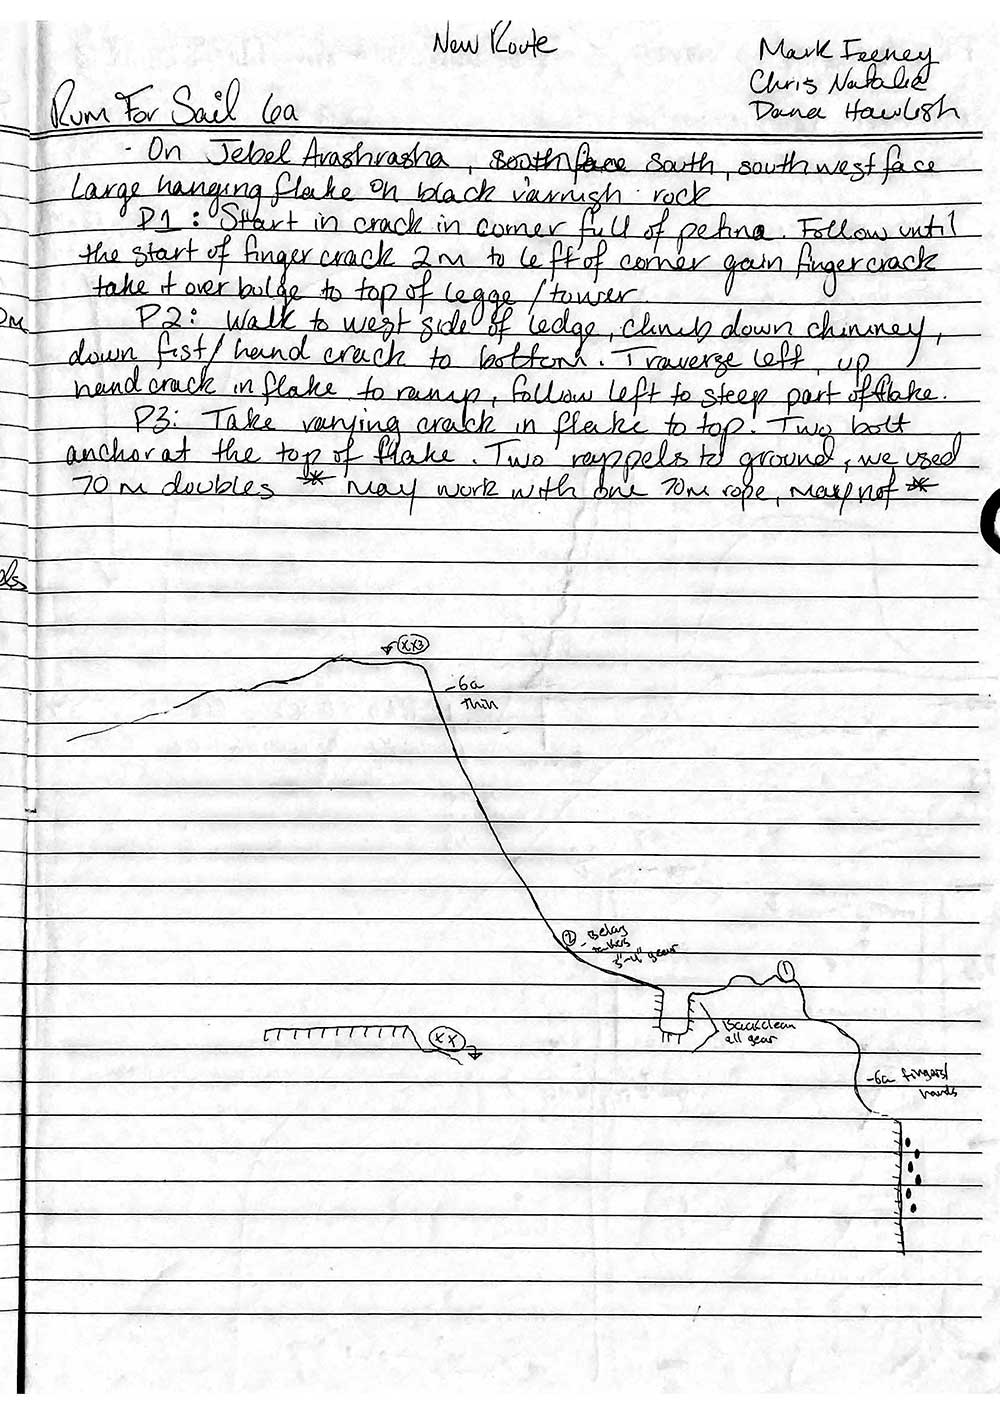 New Route
Mark Feeney
Chris Natalie
Dana Hawlish
Rum For Sail 6a
- On Jebel Arashrasha, south face south, southwest face
Large hanging flake on black varnish rock
P1: Start in crack in corner full of petina. Follow until
the start of finger crack 2m to left of corner gain finger crack
take it over bulge to top of legge/tower.
P2: Walk to west side of ledge, climb down chimney,
down fist/hand crack to bottom. Traverse left, up
hand crack in flake to ramp, follow left to steep part of flake.
P3: Take varying crack in flake to top. Two bolt
anchor at the top of flake. Two rappels to ground, we used
70m doubles * May work with one 70m rope, may not *
XX3
-6a
thin
2 - Belay
3"-4" gear
1
Backclean
all gear
XX
-6a fingers/
hands